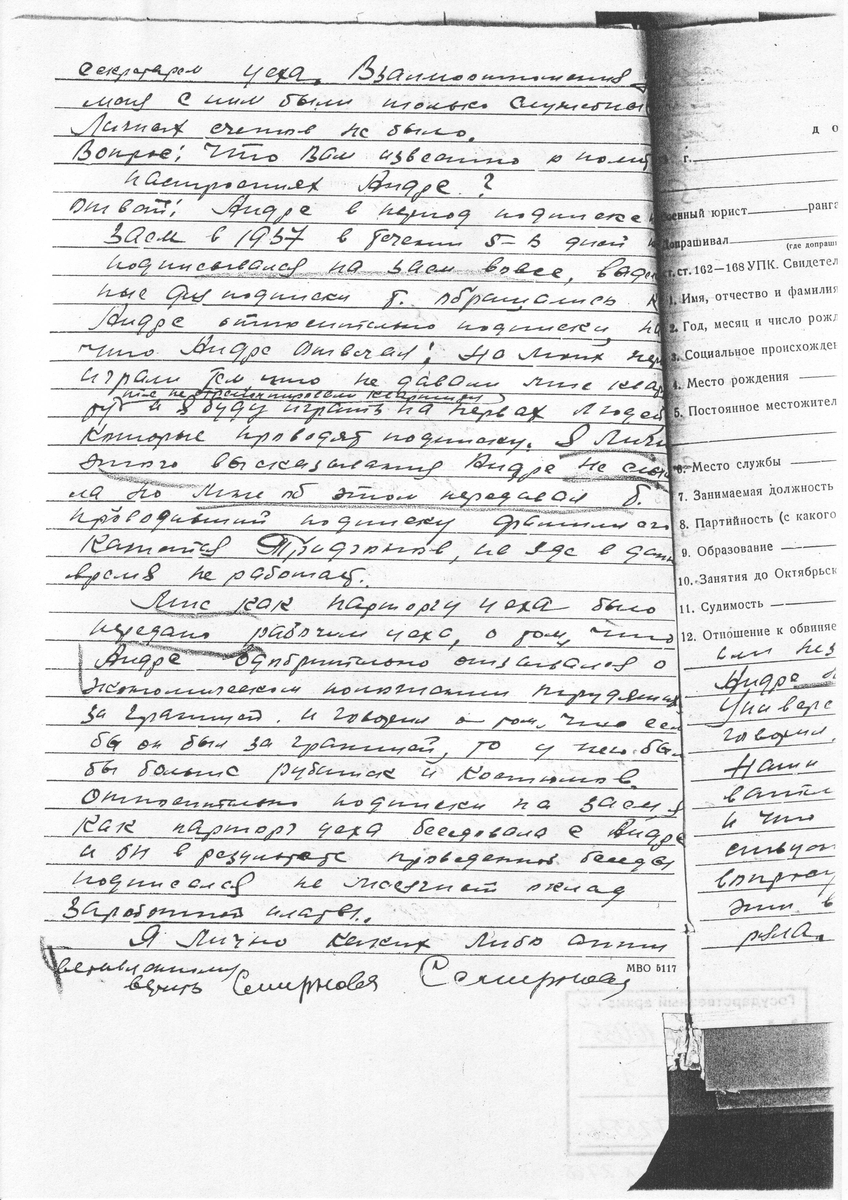 секретарем цеха. Взаимоотношения у
меня с ним были только служебны
Личных счетов не было.
Вопрос: Что Вам известно о полит
настроениях Андре?
Ответ: Андре в период подписке
Заем в 1937 в течении 5– дней
подписывался на заем вовсе,
ные для подписки т. обращались к
Андре относительно подписки, на
что Андре Отвечал: На моих
играли тем что не давали мне
мне не отремонтировали квартиры
и я буду играть на нервах Людей
которые проводят подписку. Я Личн
этого высказывания Андре не слы
ла но мне об этом передавал б.
проводивший подписку фамилия его
кажется, но где в дан
время не работает.
Мне как парторгу цеха было
передано рабочим цеха, о том, что
Андре одобрительно отзывался о
экономическом положении трудящих
за границей. и говорил о том, что есл
бы он был за границей, то у него был
бы больше рубашек и Костюмов.
Относительно подписки на заем я
как парторг цеха беседовала с Андре
и он в результате проведенной беседы
подписался на месячный оклад
Заработной платы.
Я Лично каких либо анти
вставленному
верить Смирнова Смирнова
МВО 5117
д о
г.
военный юрист ранга
Допрашивал
(где допраши
ст. ст. 162—168 УПК. Свидетел
1. Имя, отчество и фамилия
2. Год, месяц и число рожд
3. Социальное происхожден
4. Место рождения
5. Постоянное местожител
6. Место службы
7. Занимаемая должность
8. Партийность (с какого
9. Образование
10. Занятия до Октябрьск
11. Судимость
12. Отношение к обвиняе
Андре
Универс
говорил,
Наши
и что
эти в
рола.